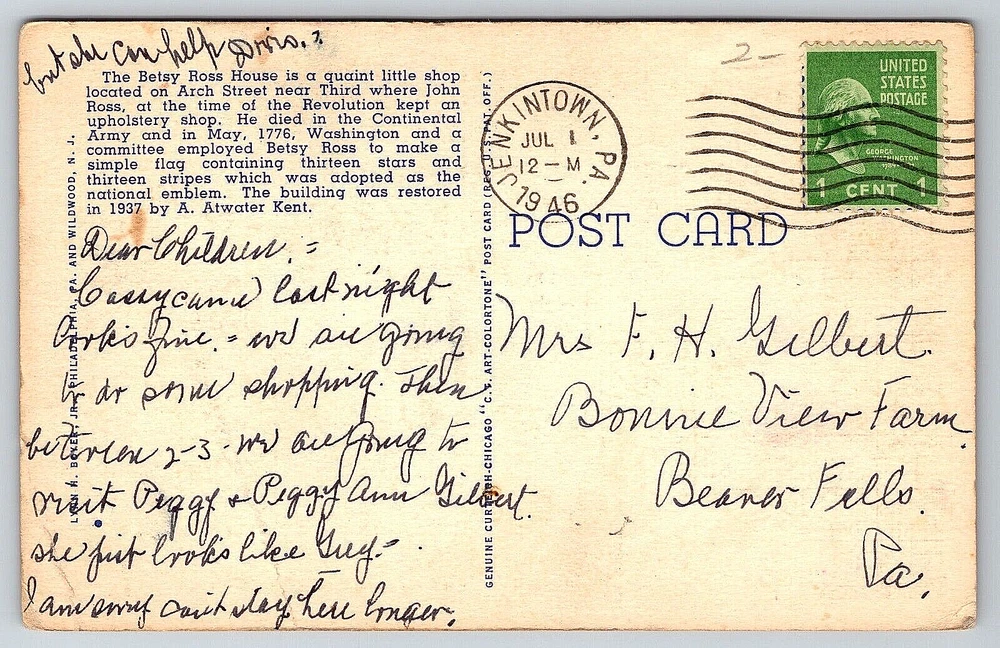 but she can help Doris.?
The Betsy Ross House is a quaint little shop
located on Arch Street near Third where John
Ross, at the time of the Revolution kept an
upholstery shop. He died in the Continental
Army and in May, 1776, Washington and a
committee employed Betsy Ross to make a
simple flag containing thirteen stars and
thirteen stripes which was adopted as the
national emblem. The building was restored
in 1937 by A. Atwater Kent.
Dear Children. =
came last night
looks fine. = we are going
to do some shopping. Then
between 2-3 - we are going to
visit Peggy & Peggy Ann Gilbert.
she just looks like Guy =.
I am sorry can't stay here longer.
H. BOYER, JR., PHILADELPHIA, PA. AND WILDWOOD, N. J.
GENUINE CURTEICH-CHICAGO "C.T. ART-COLORTONE" POST CARD (REG. U.S. PAT. OFF.)
JENKINTOWN, PA.
JUL 1
12 - M
1946
2-
UNITED
STATES
POSTAGE
GEORGE
WASHINGTON
1 CENT 1
POST CARD
Mrs F. H. Gilbert.
Bonnie View Farm.
Beaver Falls.
Pa.